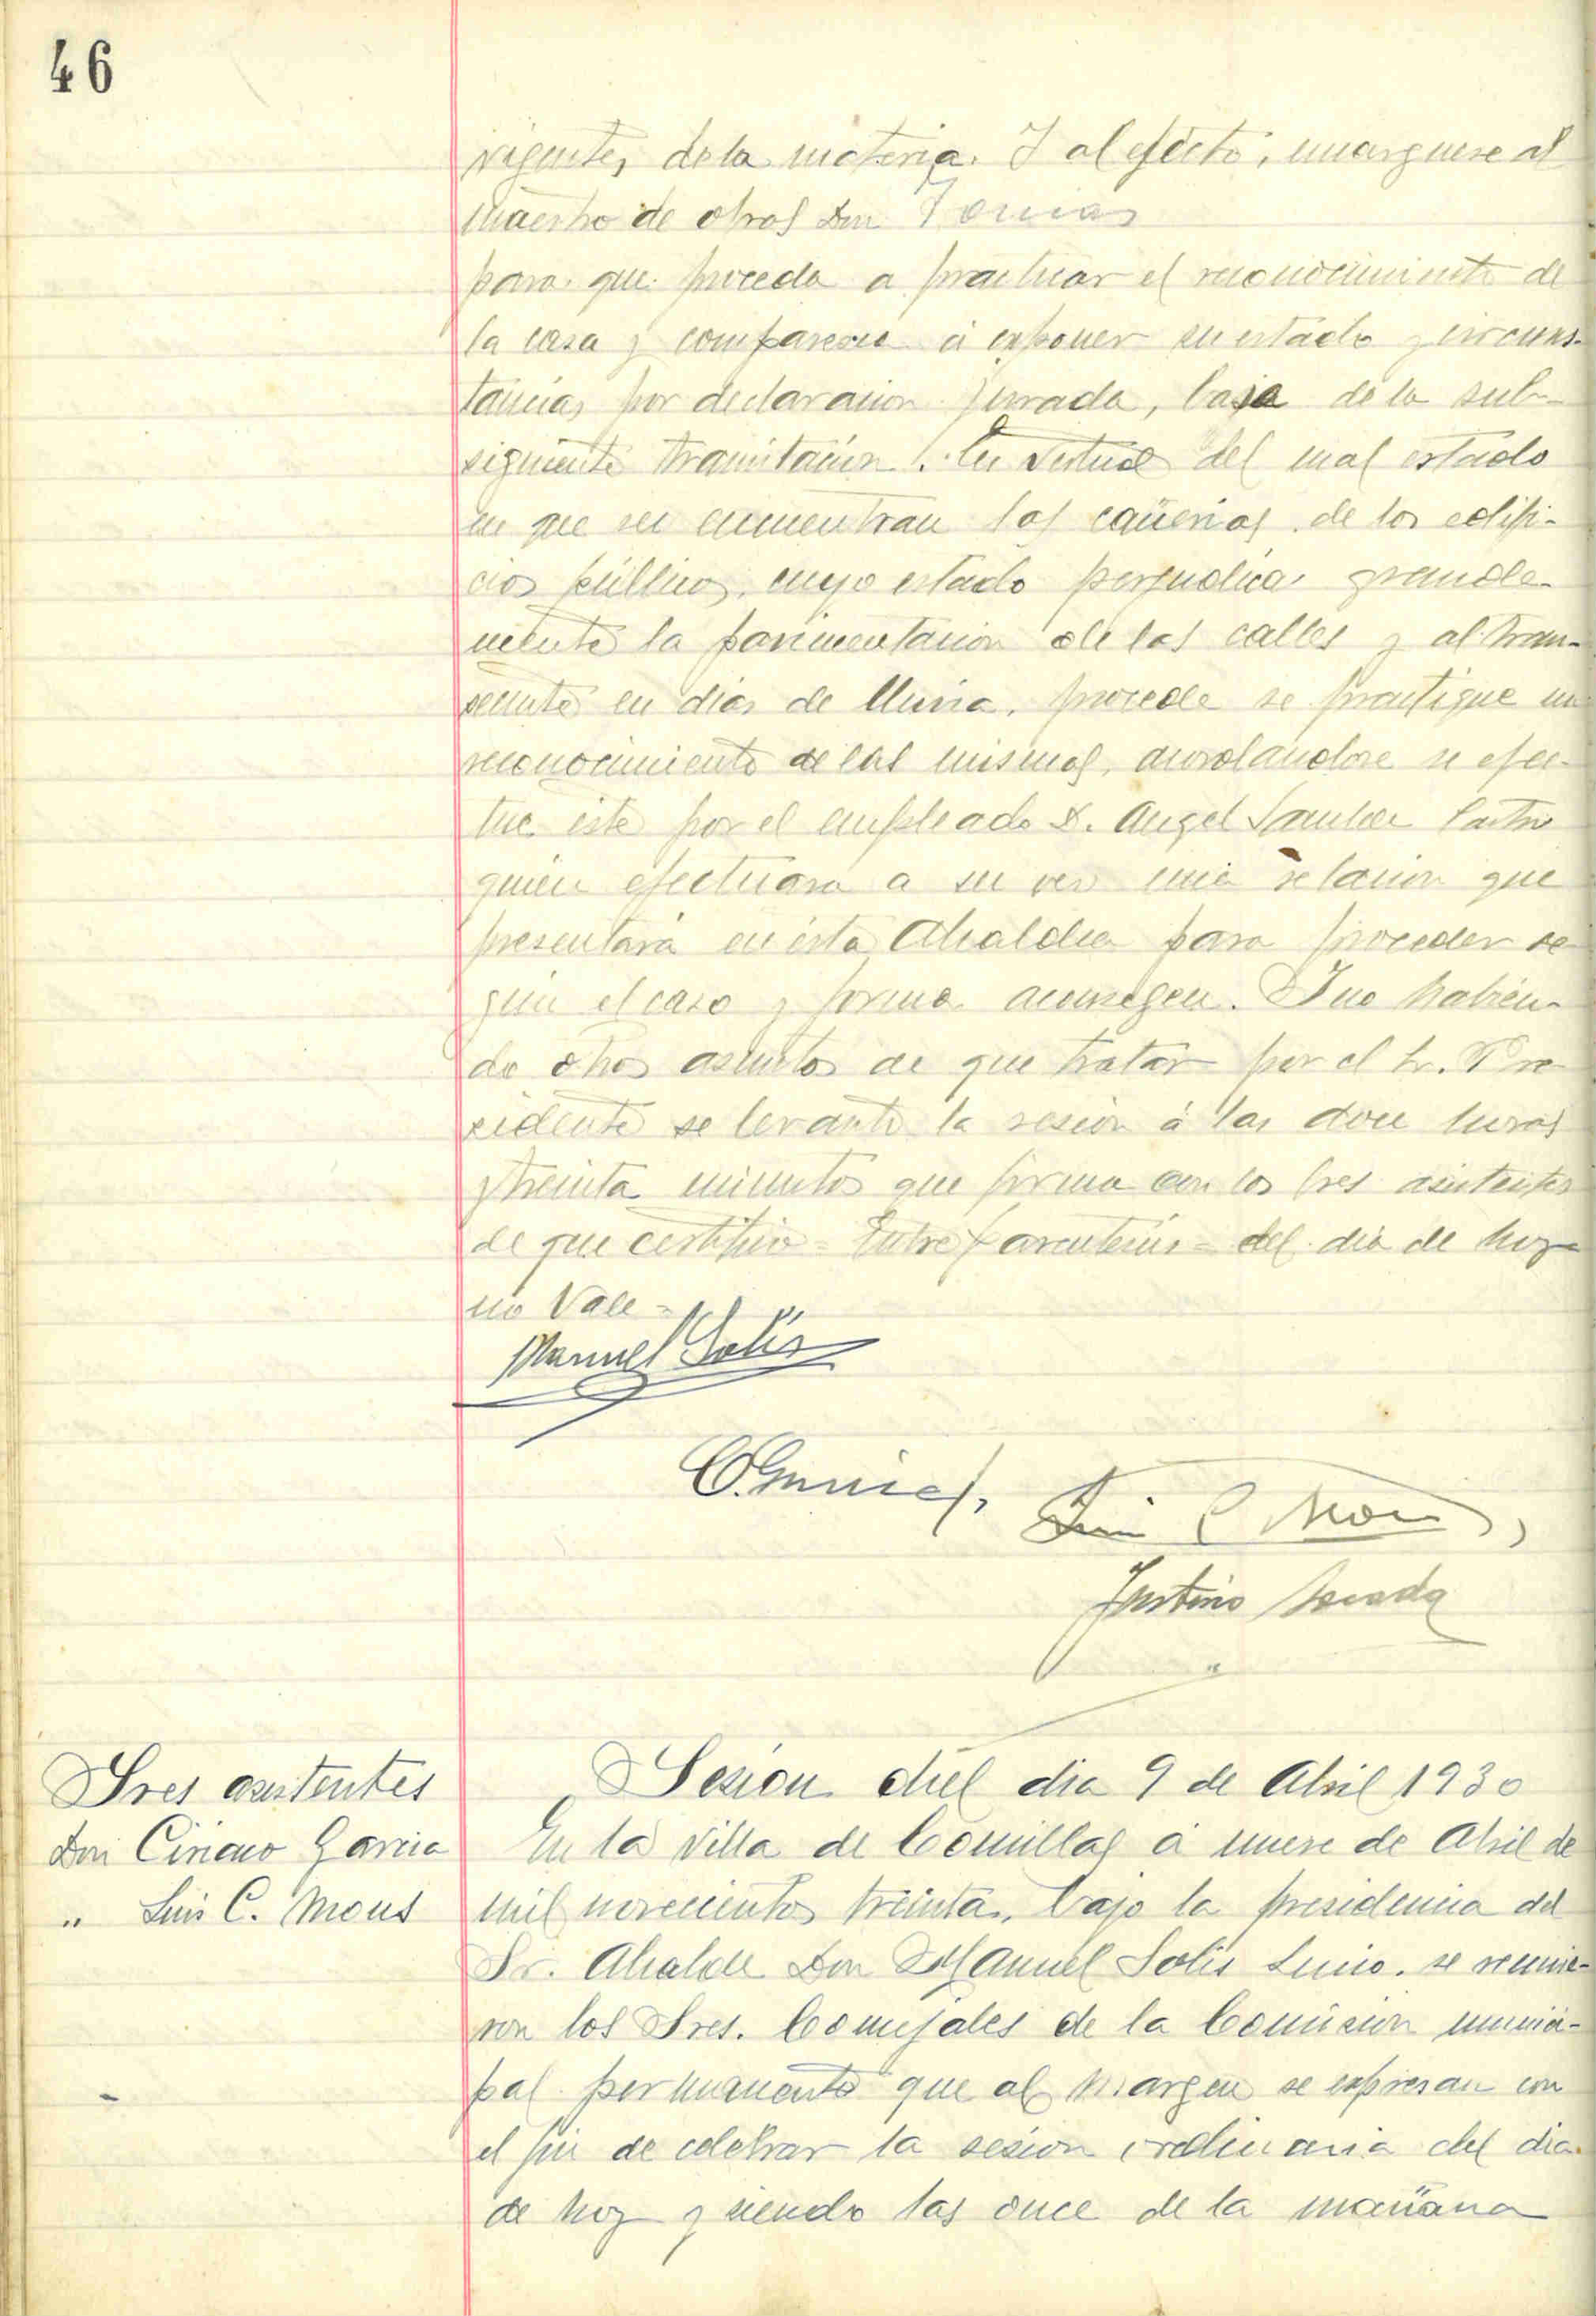 46
vigentes de la materia. Y al efecto, encarguese al
Maestro de obras Don Tomas
para que proceda a practicar el reconocimiento de
la casa y comparezca á exponer su estado y circuns-
tancias por declaracion jurada, base de la sub-
siguiente tramitación. En virtud del mal estado
en que se encuentran las cañerias de los edifi-
cios públicos, cuyo estado perjudica grande-
mente la pavimentacion de las calles y al tran-
seunte en dias de lluvia, procede se practique un
reconocimiento de las mismas, acordandose se efec-
tue este por el empleado D. Angel Sanchez Castro
quien efectuara a su vez una relacion que
presentará en esta Alcaldia para proceder se
gun el caso y forma aconsejen. Y no habien-
do otros asuntos de que tratar por el Sr. Pre
sidente se levantó la sesion á las doce horas
y treinta minutos que firma con los Sres asistentes
de que certifico = Entre parentesis = del dia de hoy =
no Vale =
Manuel Solis
C. Garcia
Luis C Mous
Justino
Sres asistentes
Don Ciriaco Garcia
" Luis C. Mous
Sesion del dia 9 de Abril 1930
En la Villa de Comillas á nueve de Abril de
mil novecientos treinta, bajo la presidencia del
Sr. Alcalde Don Manuel Solis Lucio, se reunie-
ron los Sres. Concejales de la Comision munici-
pal permanente que al margen se expresan con
el fin de celebrar la sesion ordinaria del dia
de hoy y siendo las once de la mañana